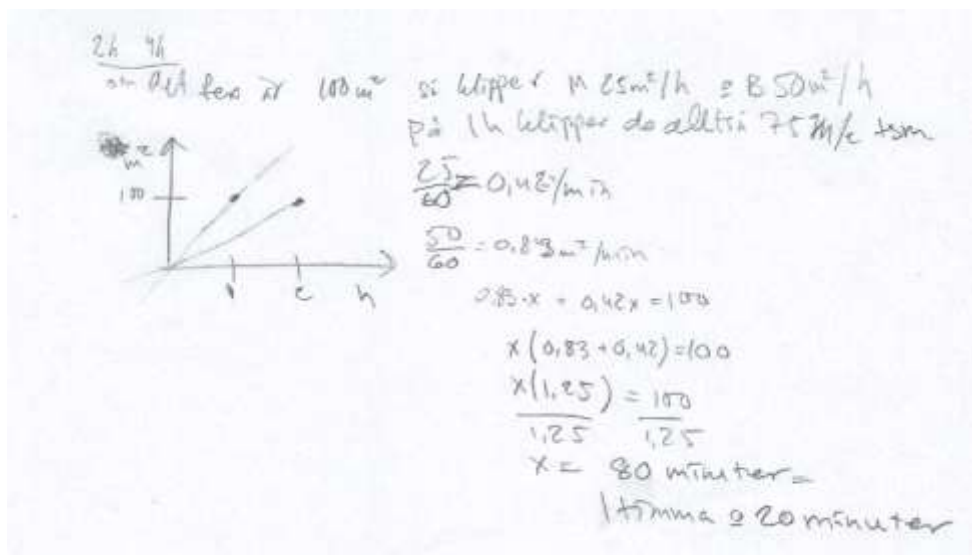 2h 4h
om det tex är 100 m² så klipper M 25m²/h o B 50m²/h
på 1h klipper de alltså 75 m²/h tsm
m²
100
h
25/60 = 0,42/min
50/60 = 0,83m²/min
0,83·x + 0,42x = 100
x(0,83 + 0,42) = 100
x(1,25)/1,25 = 100/1,25
x = 80 minuter =
1 timma o 20 minuter